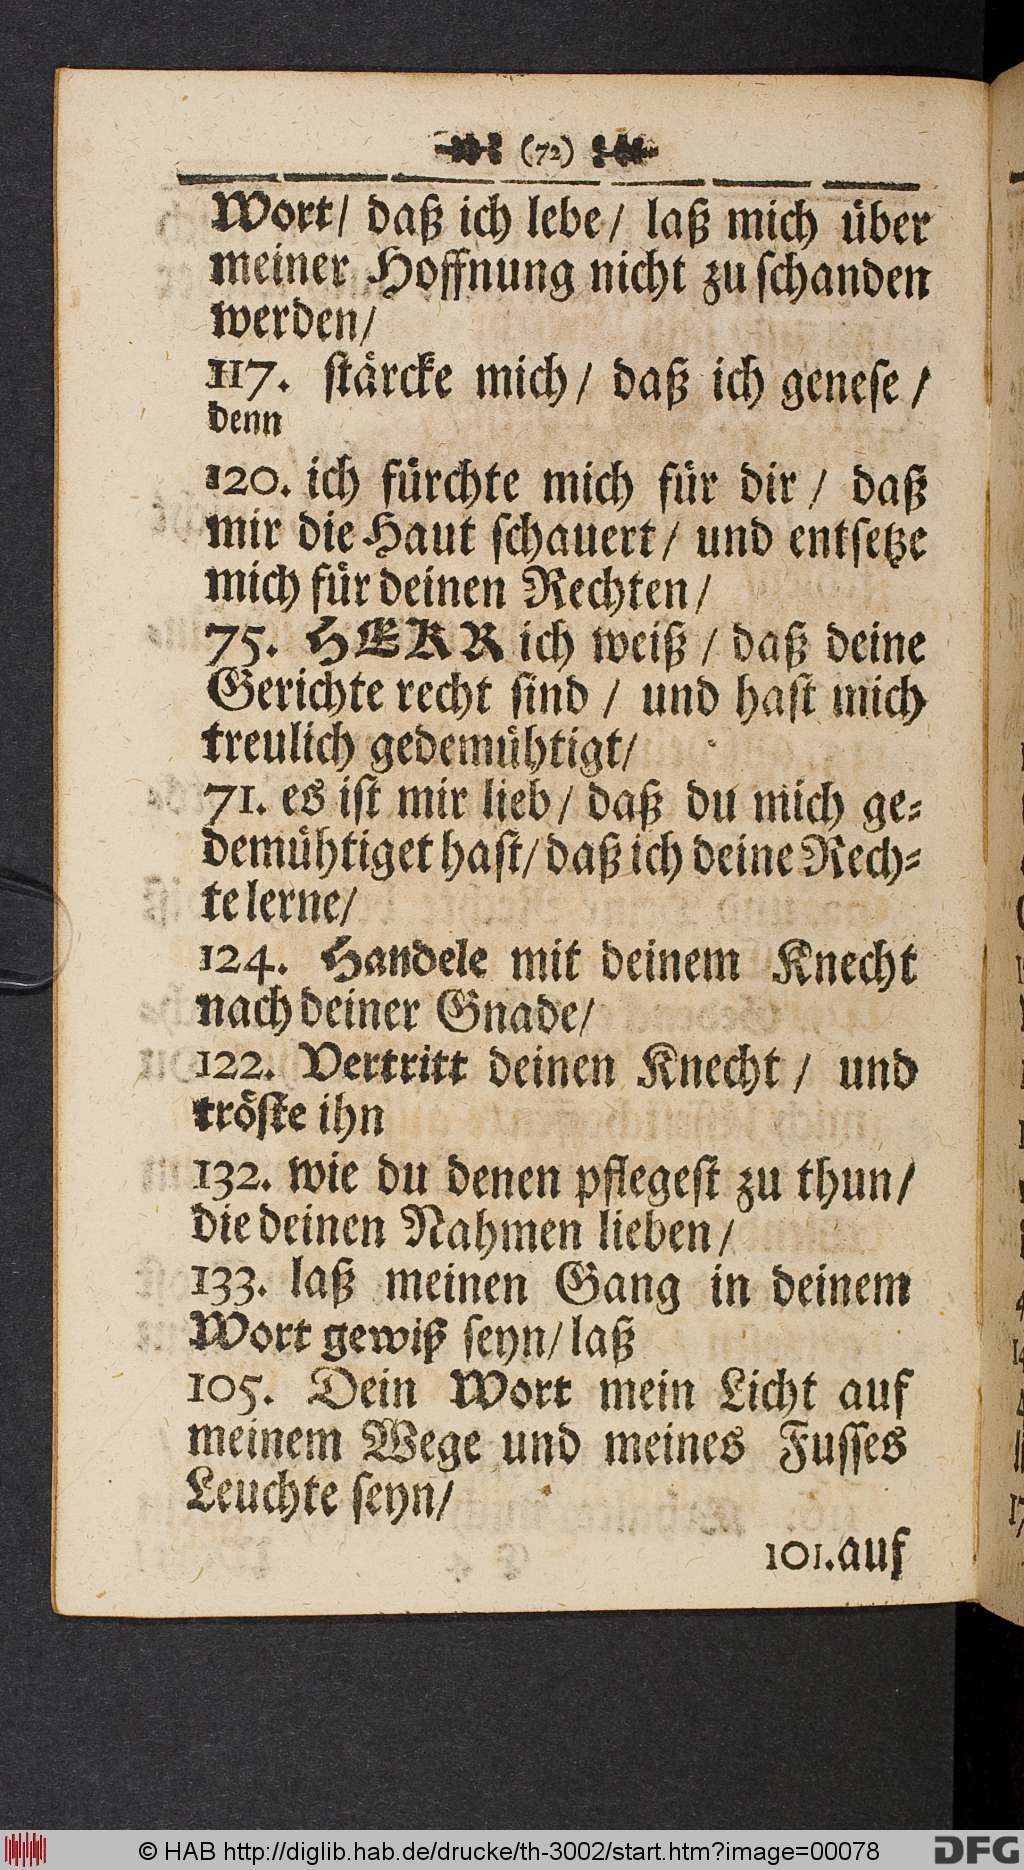 (72)
Wort/ daß ich lebe/ laß mich über
meiner Hoffnung nicht zu schanden
werden/
117. stärcke mich/ daß ich genese/
denn
120. ich fürchte mich für dir/ daß
mir die Haut schauert/ und entsetze
mich für deinen Rechten/
75. HERR ich weiß/ daß deine
Gerichte recht sind/ und hast mich
treulich gedemühtigt/
71. es ist mir lieb/ daß du mich ge-
demühtiget hast/ daß ich deine Rech-
te lerne/
124. Handele mit deinem Knecht
nach deiner Gnade/
122. Vertritt deinen Knecht/ und
tröste ihn
132. wie du denen pflegest zu thun/
die deinen Nahmen lieben/
133. laß meinen Gang in deinem
Wort gewiß seyn/ laß
105. Dein Wort mein Licht auf
meinem Wege und meines Fusses
Leuchte seyn/
101. auf
© HAB http://diglib.hab.de/drucke/th-3002/start.htm?image=00078
DFG